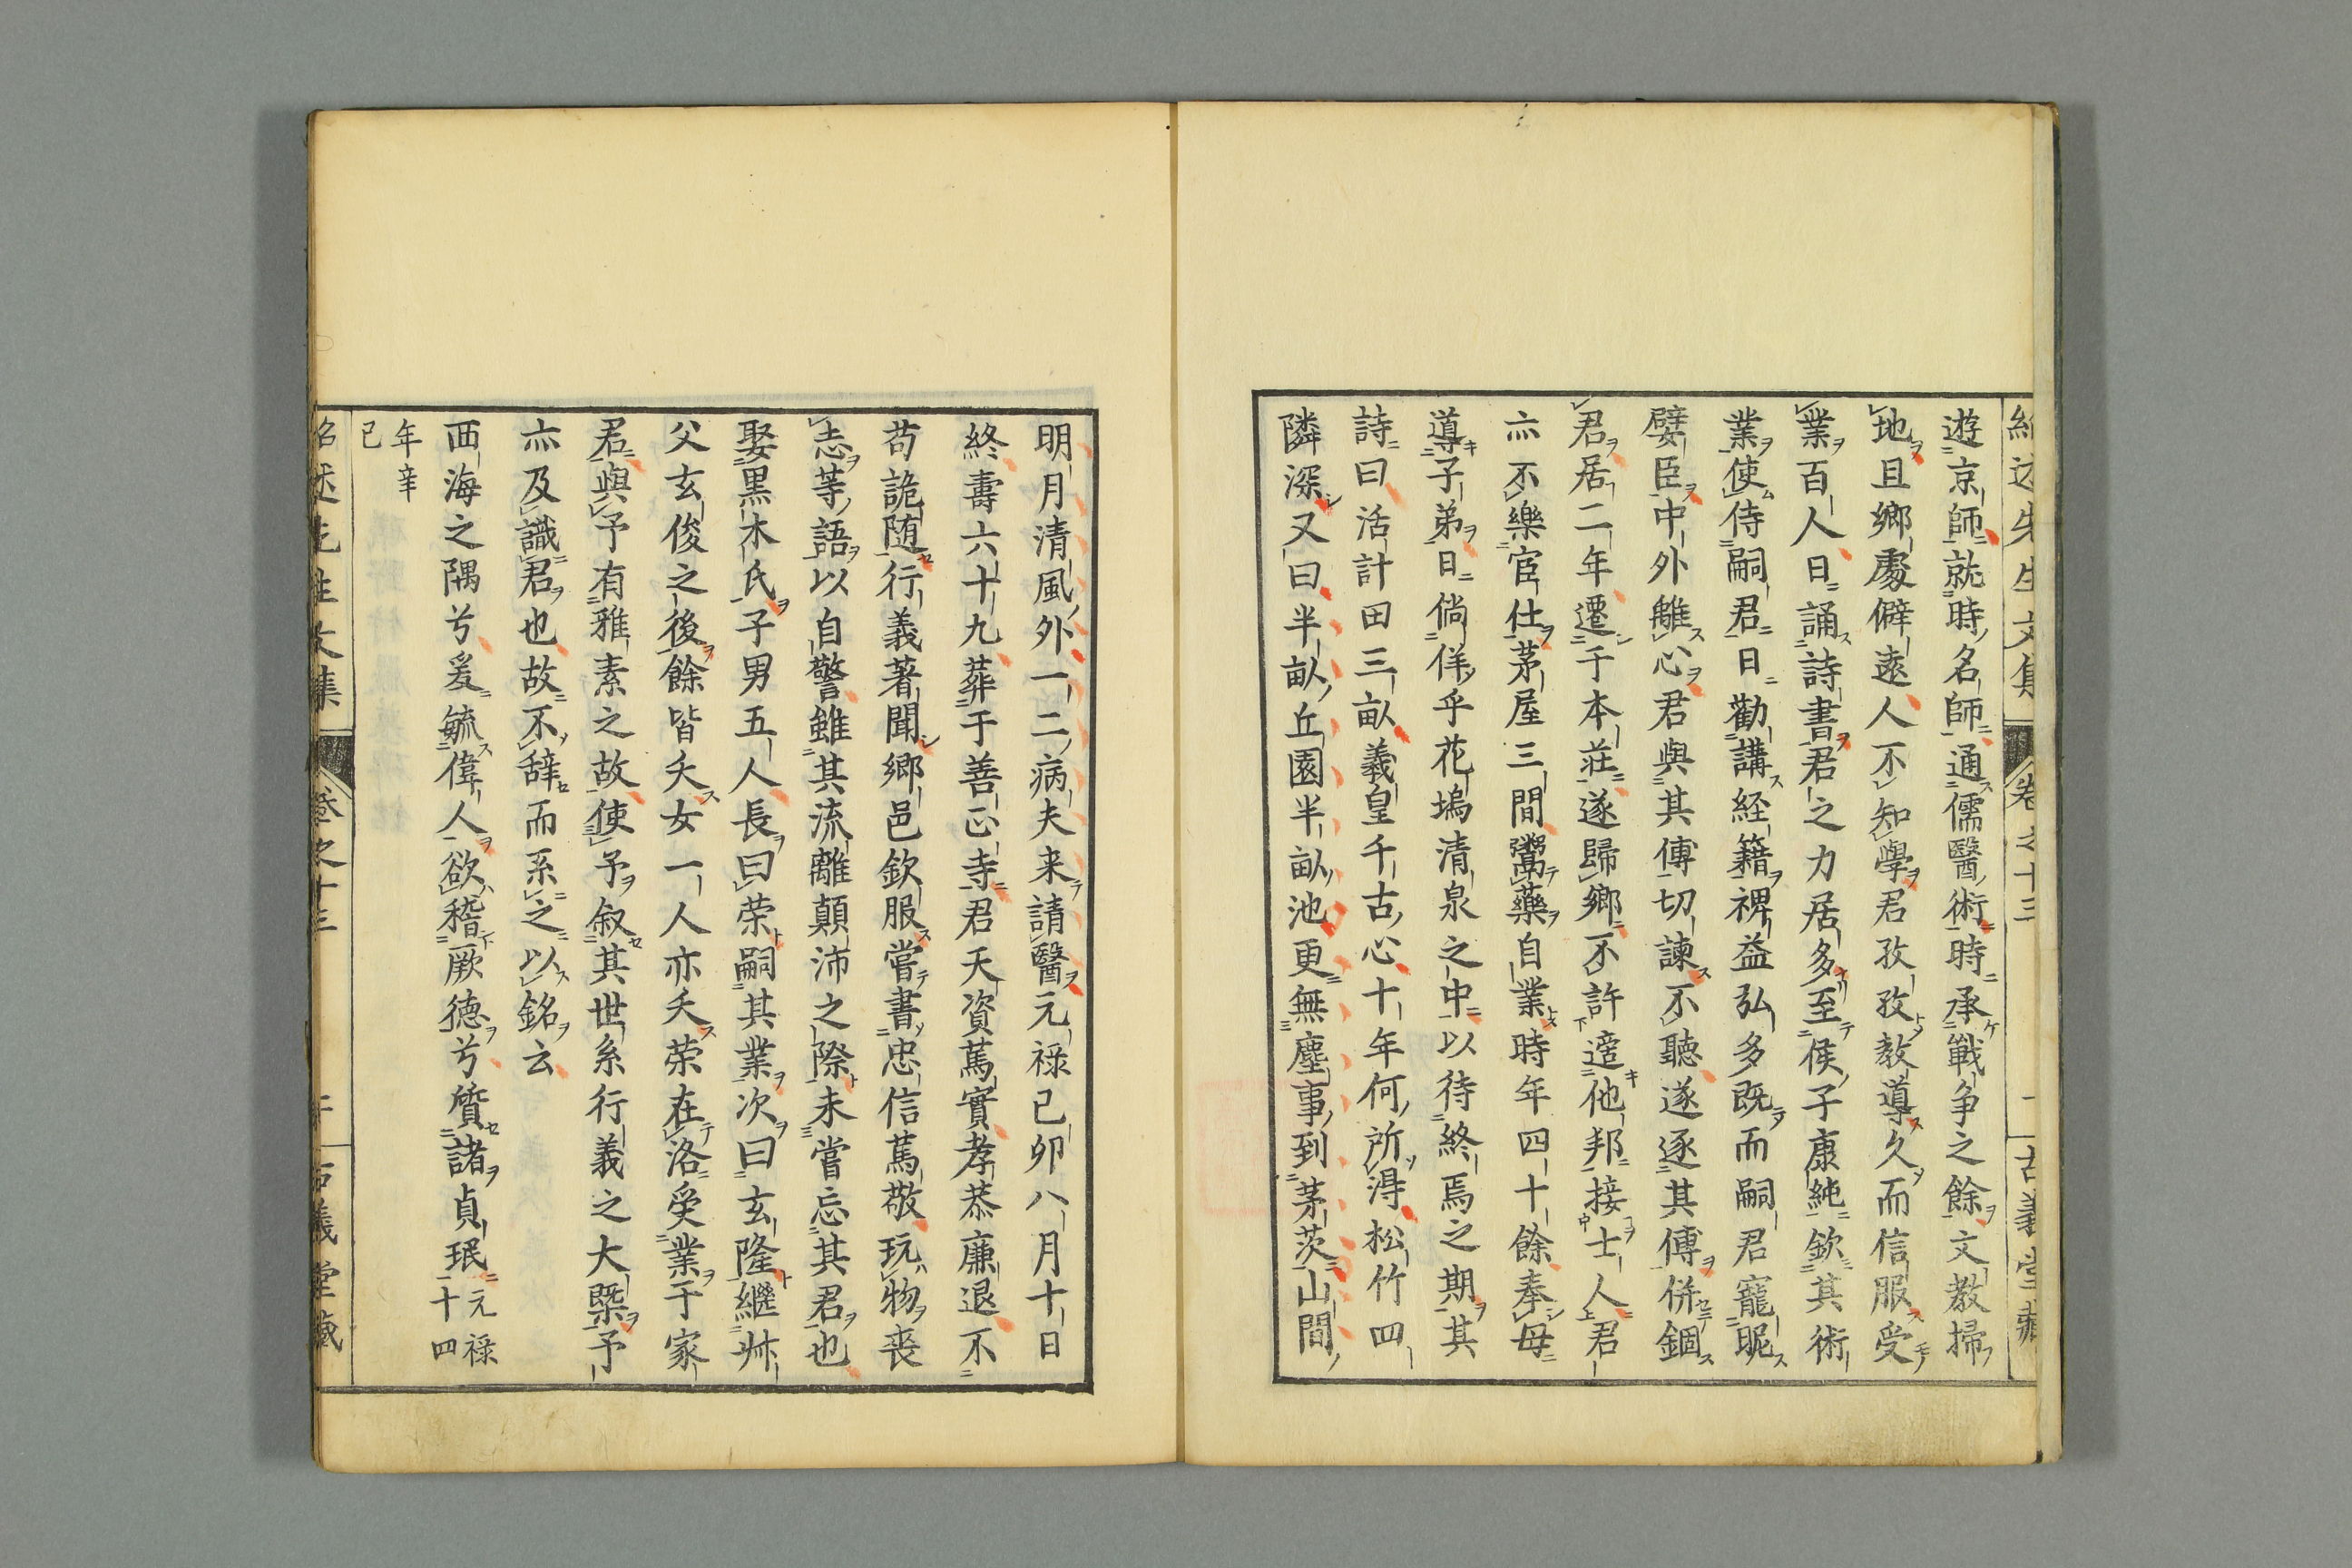 紹述先生文集 卷之十三 古義堂藏
遊京師就時名師通儒醫術時承戰争之餘文教掃
地且鄉處僻遠人不知學君孜孜教導久而信服受
業百人日誦詩書君之力居多至侯子康純欽其術
業使侍嗣君日勸講経籍裨益弘多既而嗣君寵昵
嬖臣中外離心君與其傅切諫不聽遂逐其傅併錮
君居二年遷于本莊遂歸鄉不許遊他邦接士人君
亦不樂宦仕茅屋三間鬻藥自業時年四十餘奉母
導子弟日倘佯乎花塢清泉之中以待終焉之期其
詩曰活計田三畝義皇千古心十年何所淂松竹四
隣深又曰半畝丘園半畝池更無塵事到茅茨山間
明月清風外一二病夫来請醫元禄己卯八月十日
終壽六十九葬于善正寺君天資篤實孝恭廉退不
苟詭随行義著聞鄉邑欽服嘗書忠信篤敬玩物喪
志等語以自警雖其流離顛沛之際未嘗忘其君也
娶黒木氏子男五人長曰荣嗣其業次曰玄隆繼舛
父玄俊之後餘皆夭女一人亦夭荣在洛受業于家
君與予有雅素之故使予叙其世系行義之大槩予
亦及識君也故不辞而系之以銘云
西海之隅兮爰毓偉人欲稽厥德兮質諸貞珉元禄
十四
年辛
巳
紹述先生文集 卷之十三 古義堂藏